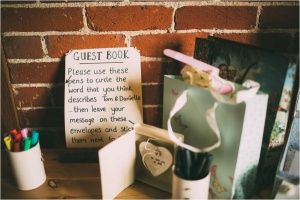 GUEST BOOK
Please use these
pens to circle the
word that you think
describes Tom & Danielle
... then leave your
message on these
envelopes and stick
them next to